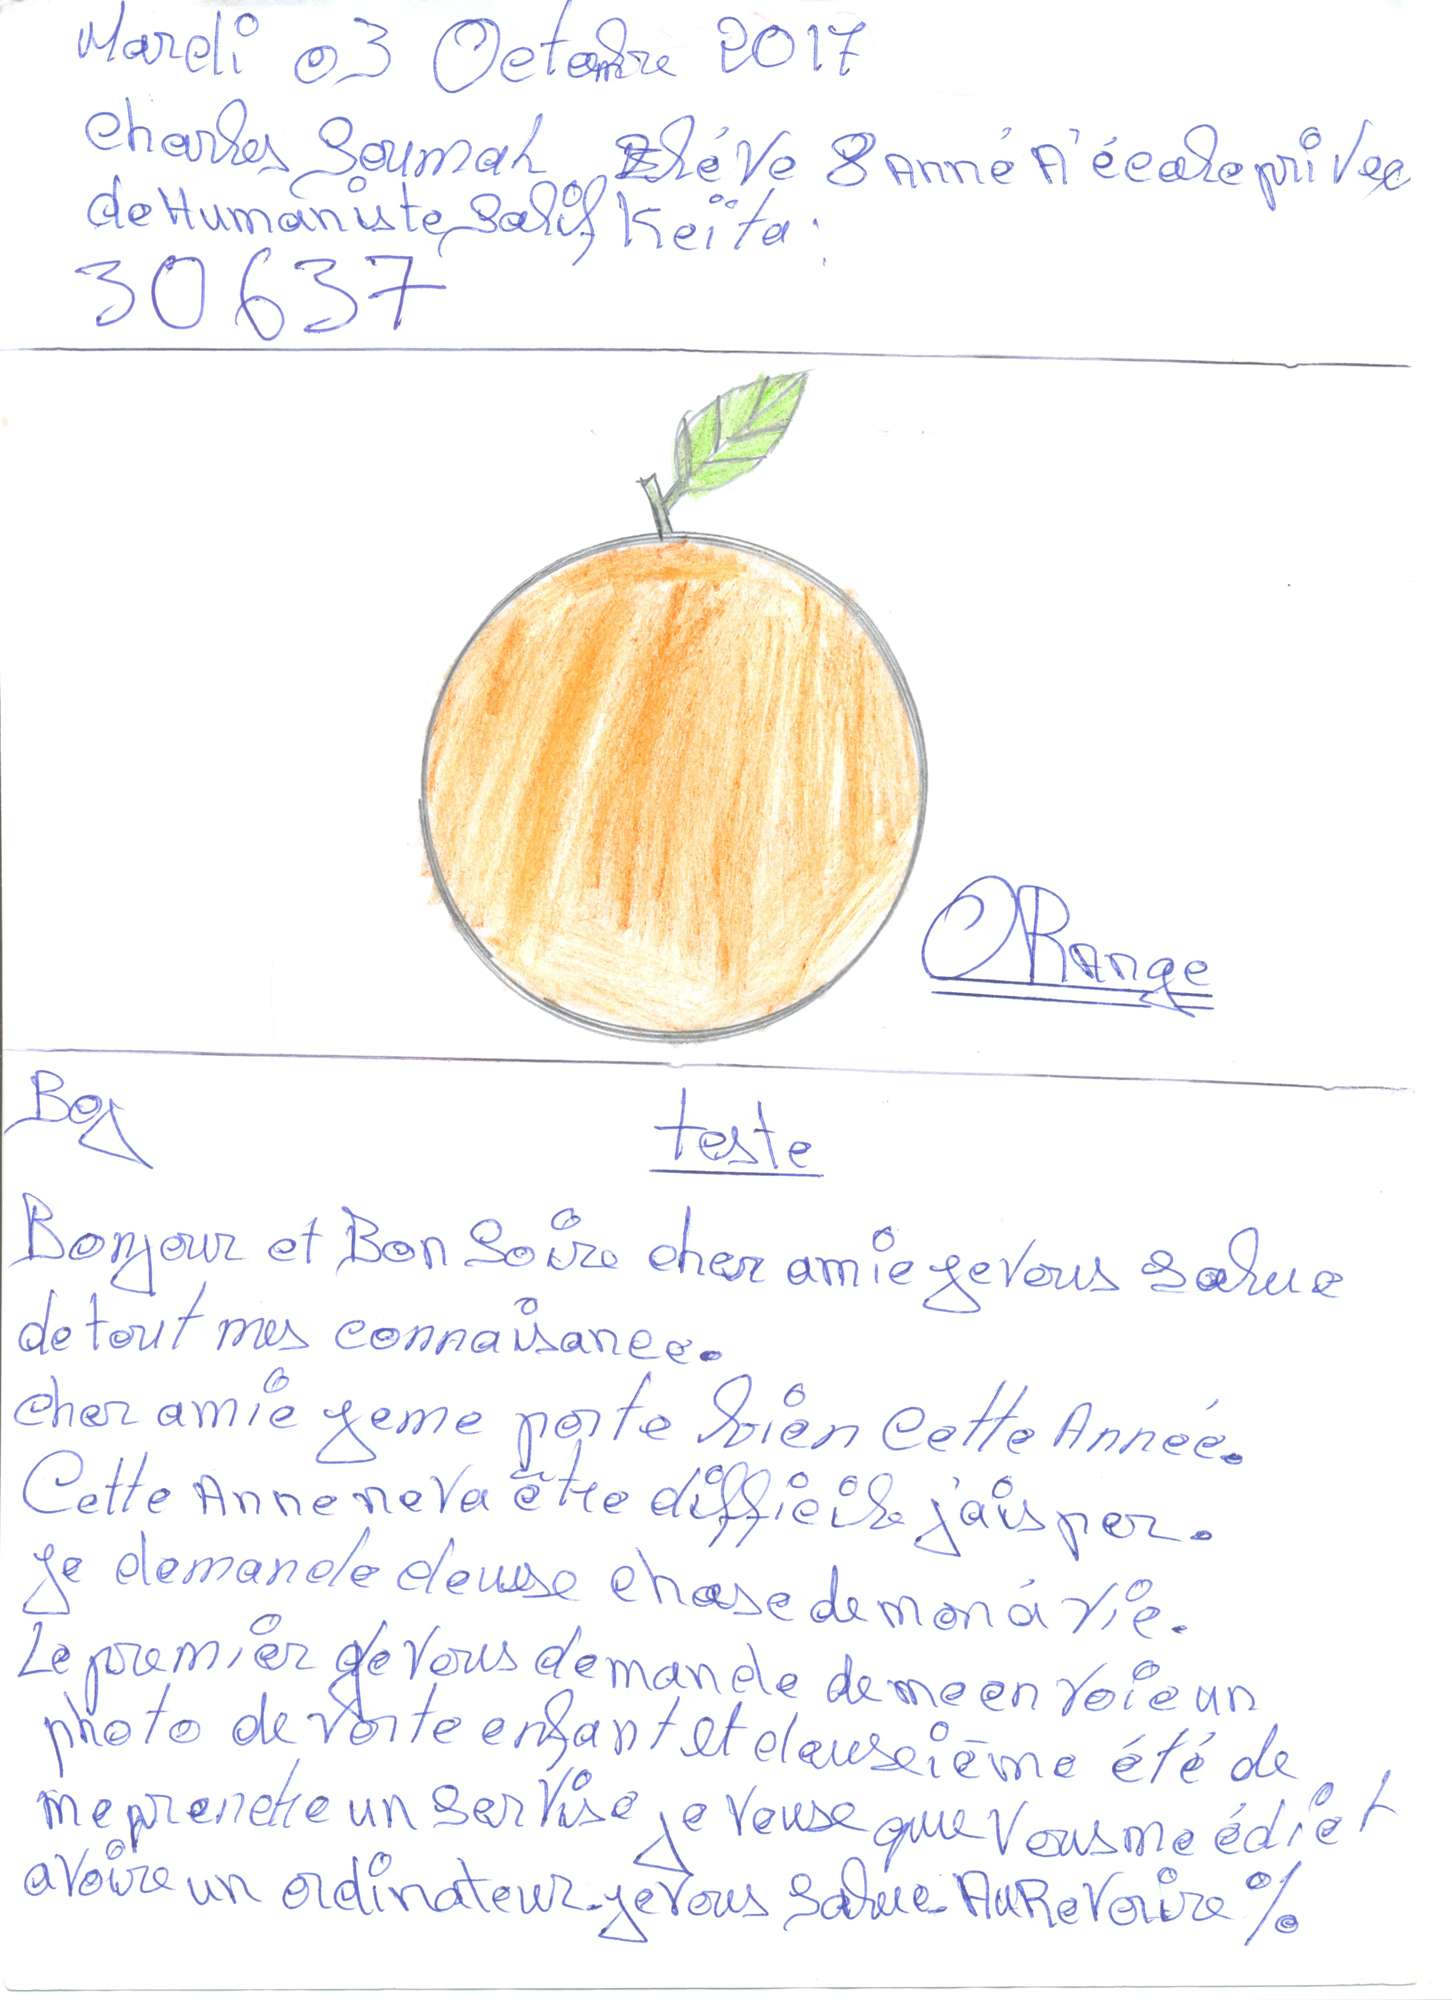 Mardi 03 Octombre 2017
Charles Soumah Elève 8 Anné A' école privee
de Humaniste Salif Keïta.
30637
ORange
Boj
teste
Bonjour et Bon Soire cher amie je vous salue
de tout mes connaisance.
cher amie je me porte bien Cette Année.
Cette Anne ne va être difficile j'aisper.
je demande deuse chose de mon à vie.
Le premier je vous demande de me en voie un
photo de votre enfant et deuseième été de
me prendre un servise je veuse que vous me édiet
avoire un ordinateur. je vous salue. Au Revoire %